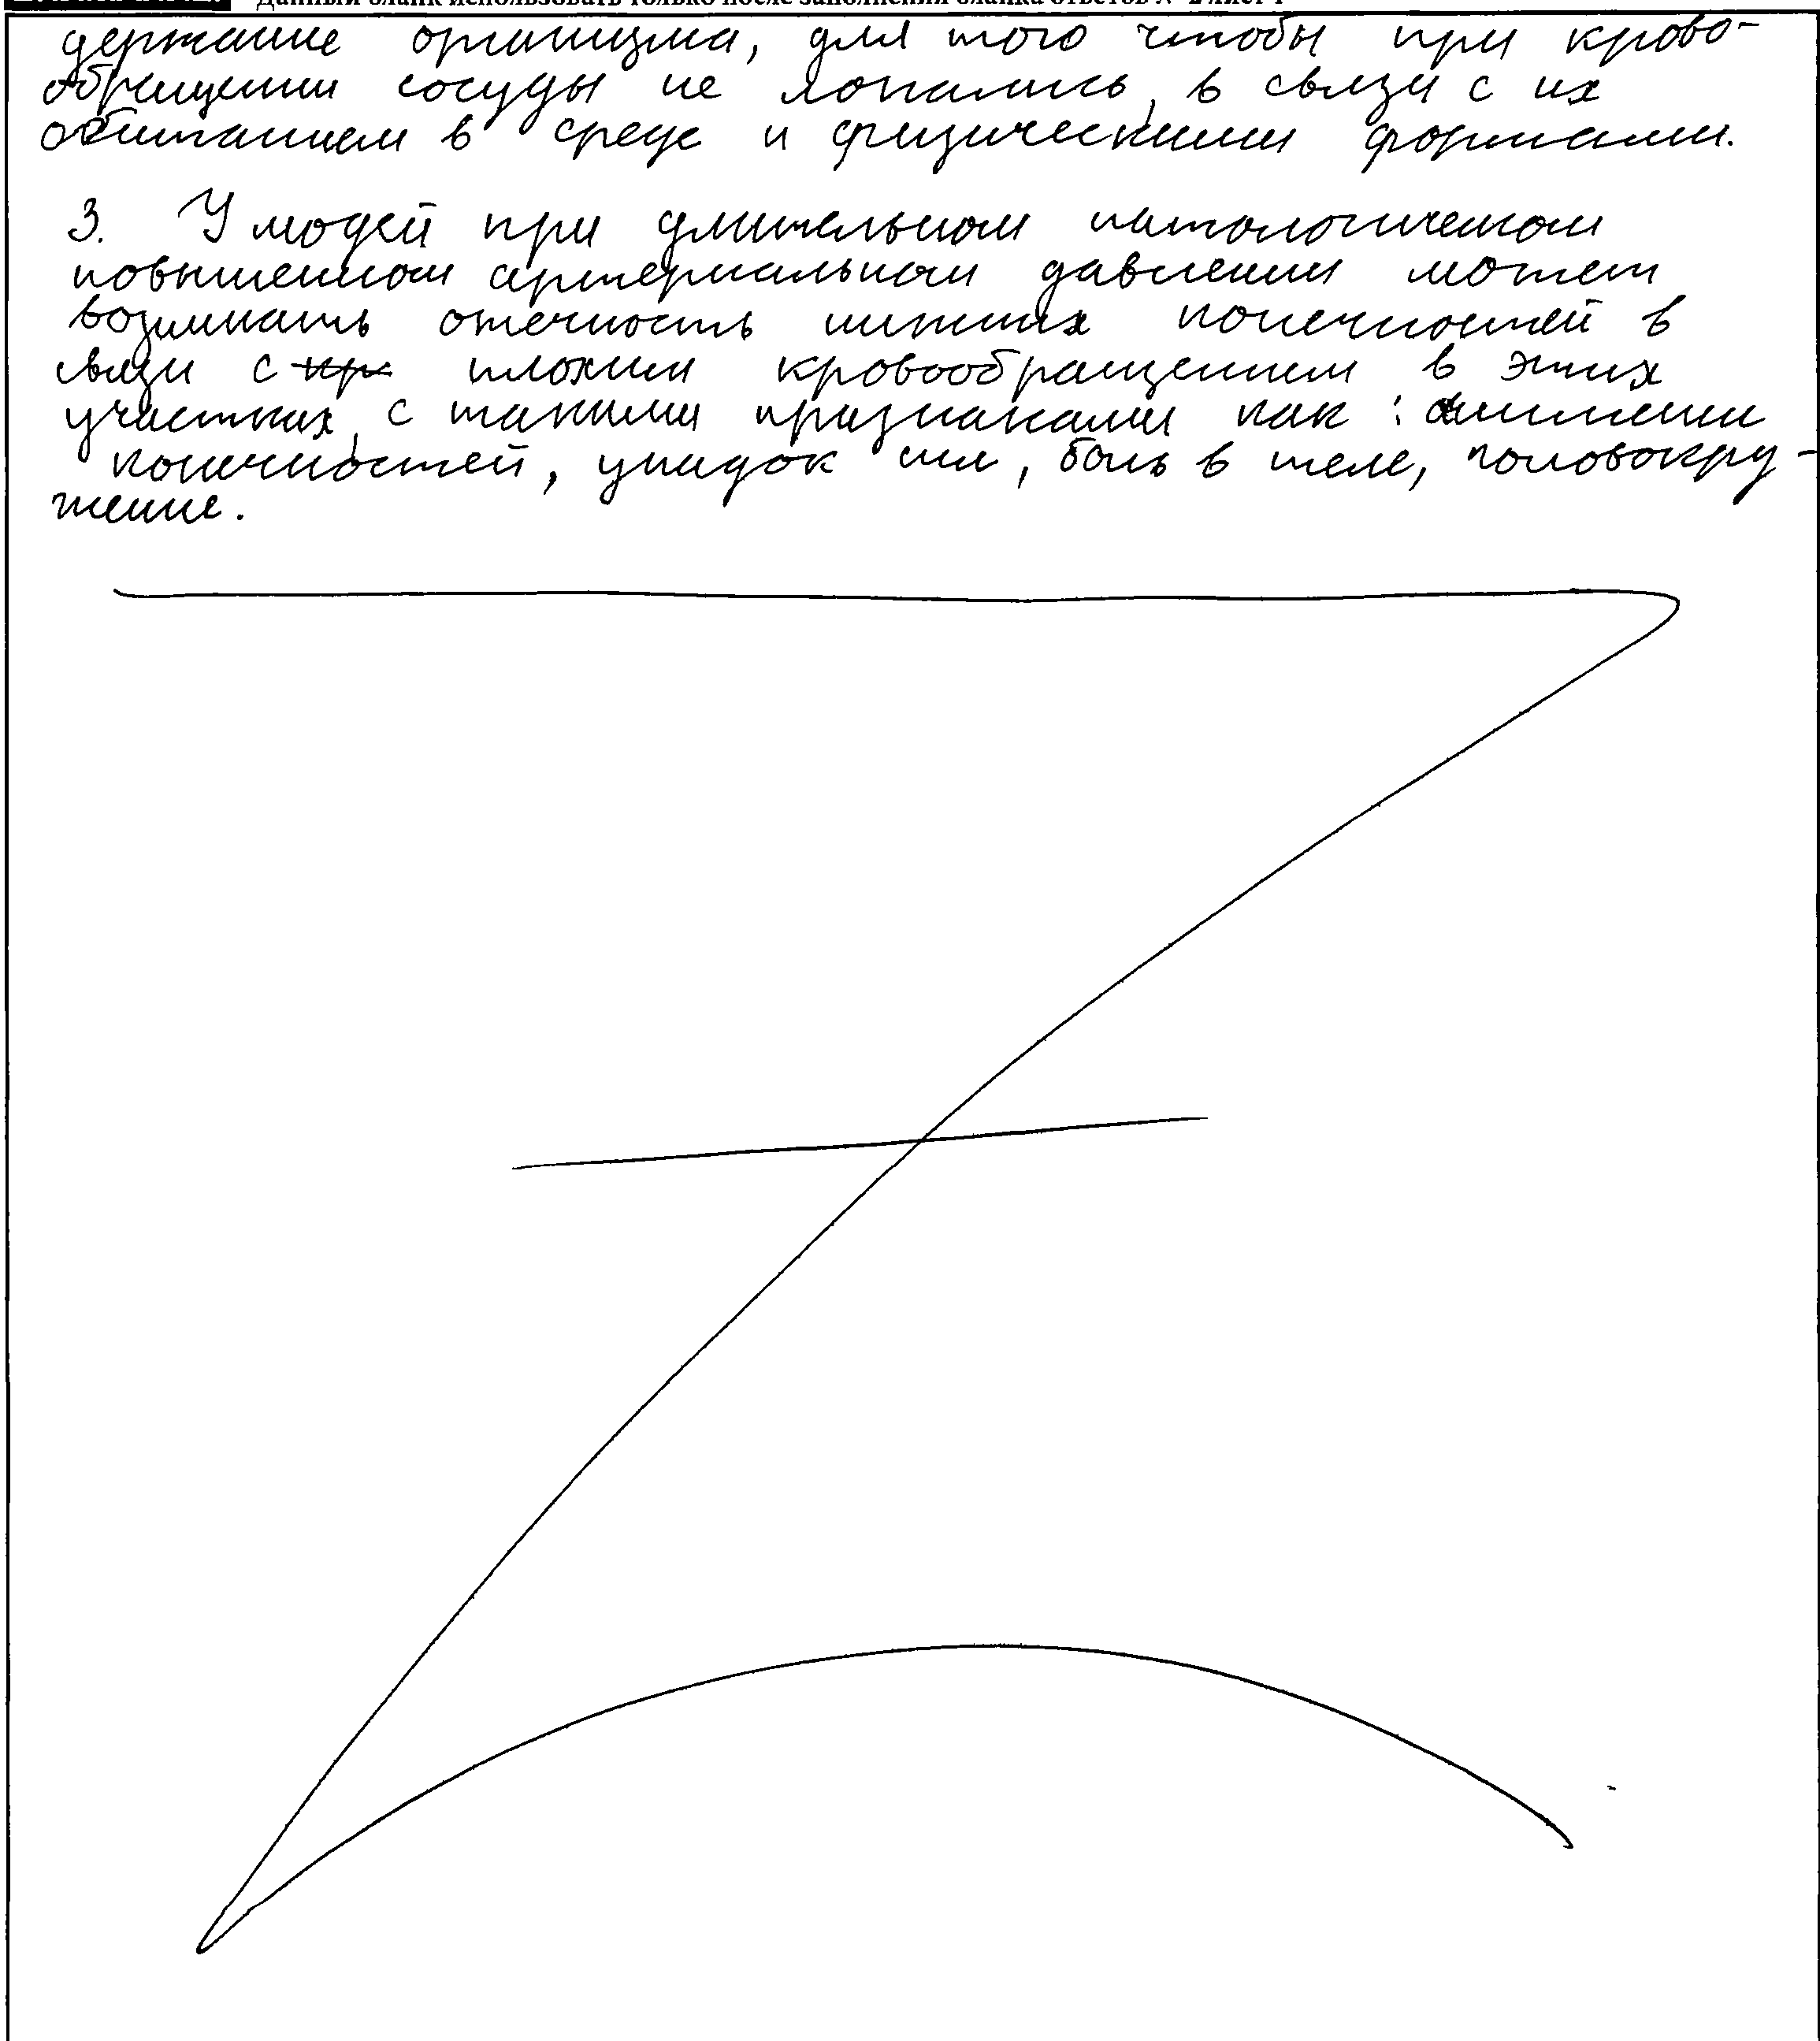 Данный бланк использовать только после заполнения бланка ответов № 2 лист 1
держание организма, для того чтобы при крово-
обращении сосуды не лопались, в связи с их
обитанием в среде и физическими формами.
3. У людей при длительном патологическом
повышенном артериальном давлении может
возникать отечность нижних конечностей в
связи с плохим кровообращением в этих
участках, с такими признаками как: онемении
конечностей, упадок сил, боль в теле, головокру-
жение.